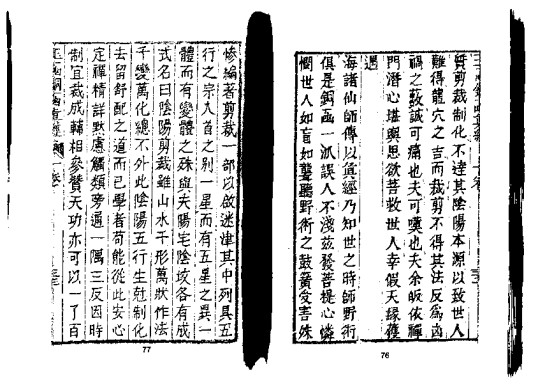 質剪裁制化不達其陰陽本源以致世人
難得龍穴之吉而裁剪不得其法反為凶
禍之藪誠可痛也夫可嘆也夫余皈依禪
門潛心堪輿思欲普救世人幸假天緣獲
遇
海諸仙師傳以真經乃知世之時師野術
俱是銅函一派誤人不淺茲發菩提心憐
憫世人如盲如聾聽野術之鼓簧受害殊
慘編著剪裁一部以啟迷津其中列具五
行之宗入首之別一星而有五星之異一
體而有變體之殊與夫陽宅陰墳各有成
式名曰陰陽剪裁雖山水千形萬狀作法
千變萬化總不外此陰陽五行生尅制化
去留舒配之道而已學者苟能從此安心
定禪精詳默慮觸類旁通一隅三反因時
制宜裁成輔相參贊天功亦可以一了百
77
76